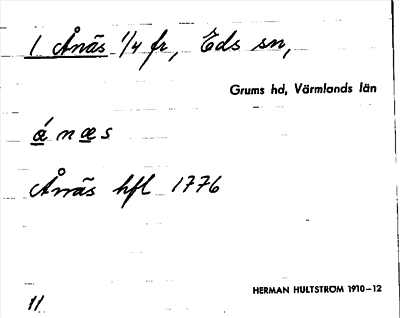 1 Ånäs 1/4 fr, Eds sn,
Grums hd, Värmlands län
ánæs
Ånäs hfl 1776
HERMAN HULTSTRÖM 1910–12
11